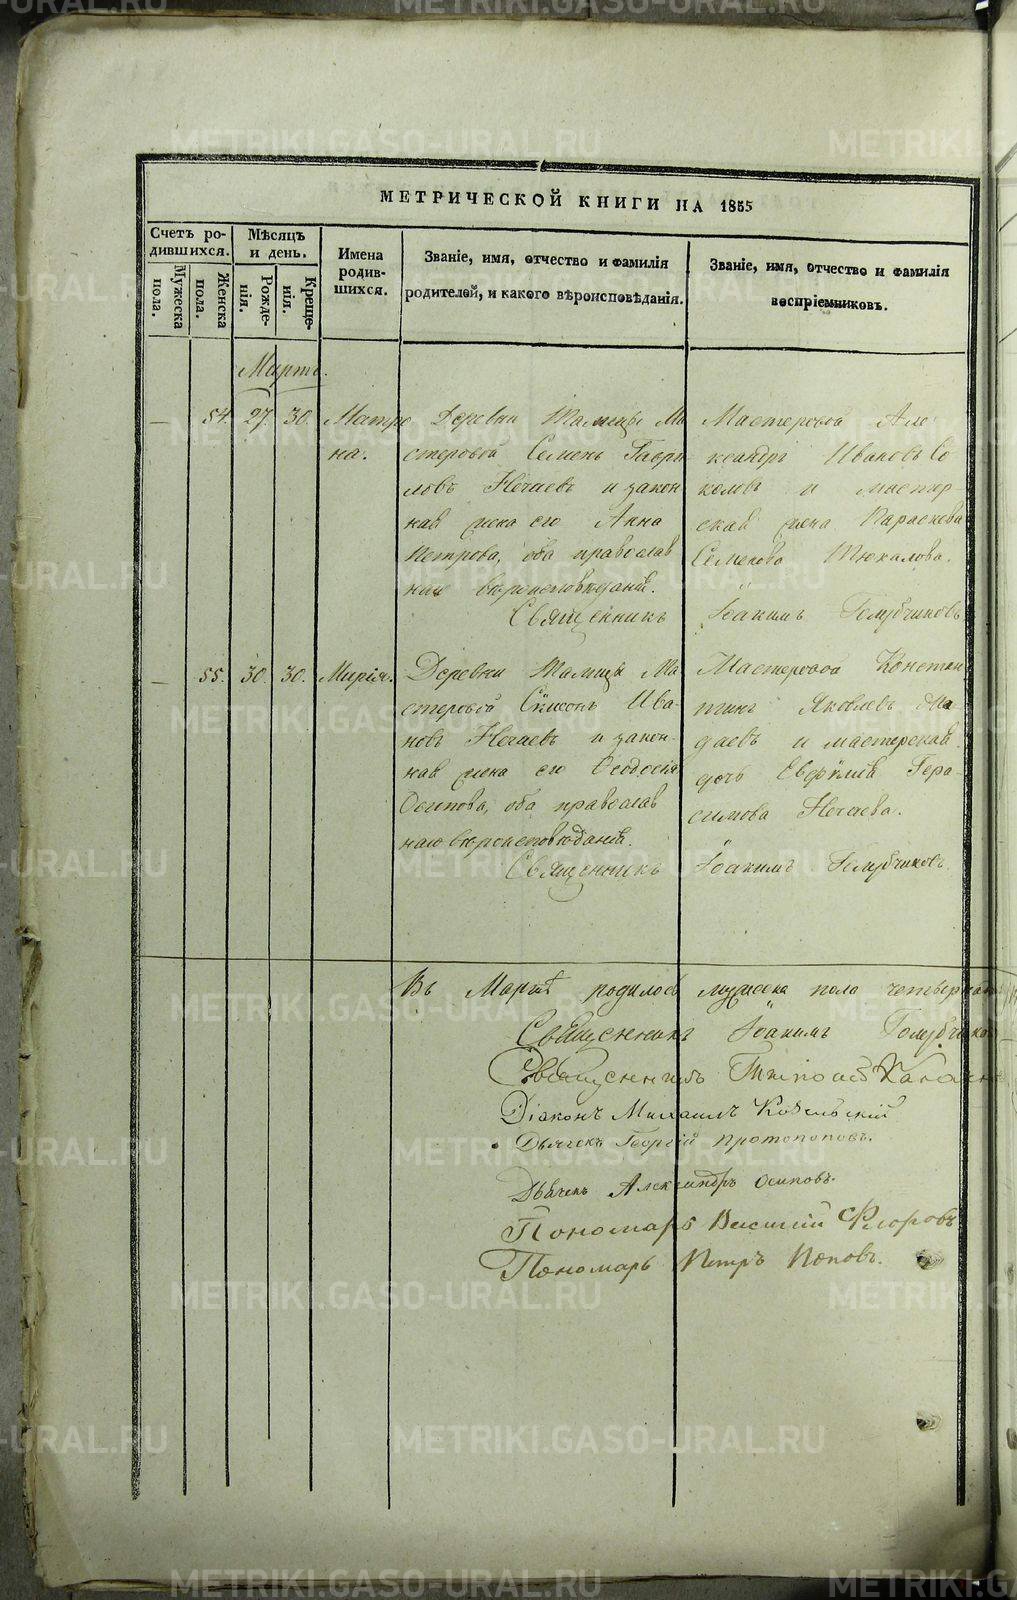 METRIKI.GASO-URAL.RU
МЕТРИЧЕСКОЙ КНИГИ НА 1855
Счетъ ро-
дившихся.
Мужеска
пола.
Женска
пола.
Мѣсяцъ
и день.
Рожде-
нія.
Креще-
нія.
Имена
родив-
шихся.
Званіе, имя, отчество и фамилія
родителей, и какого вѣроисповѣданія.
Званіе, имя, отчество и фамилія
воспріемниковъ.
Мартъ.
— 54. 27. 30. Матро
на.
Деревни Талицы Ма
стеровой Семенъ Гаври
ловъ Нечаевъ и закон
ная жена его Анна
Петрова, оба православ
наго вѣроисповѣданія.
Мастеровой Але
ксандръ Ивановъ Со
коловъ и мастер-
ская жена Параскева
Семенова Тюкалова.
Священникъ Іоакимъ Голубчиковъ
— 55. 30. 30. Марія.
Деревни Талицы Ма
стеровой Симонъ Ива
новъ Нечаевъ и закон-
ная жена его Ѳеодосія
Осипова, оба православ
наго вѣроисповѣданія.
Мастеровой Констан
тинъ Яковлевъ
и мастерская
дочь Евфимія Гера-
симова Нечаева.
Священникъ Іоакимъ Голубчиковъ
Въ Мартѣ родилось мужеска пола
Священникъ Іоакимъ Голубчиков
Священникъ
Діаконъ Михаилъ
Дьячекъ Георгій Протопоповъ.
Дьячекъ Александръ Осиповъ.
Пономарь Василій Флоровъ
Пономарь Петръ Поповъ.